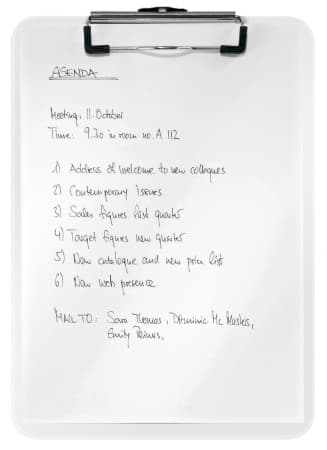 AGENDA
Meeting: 11. October
Time: 9.30 in room no. A 112
1) Address of welcome to new colleques
2) Contemporary issues
3) Sales figures last quarter
4) Target figures new quarter
5) New catalogue and new price lists
6) New web presence
MAIL TO: Sara Thomas, Dominic Mc Masters,
Emily